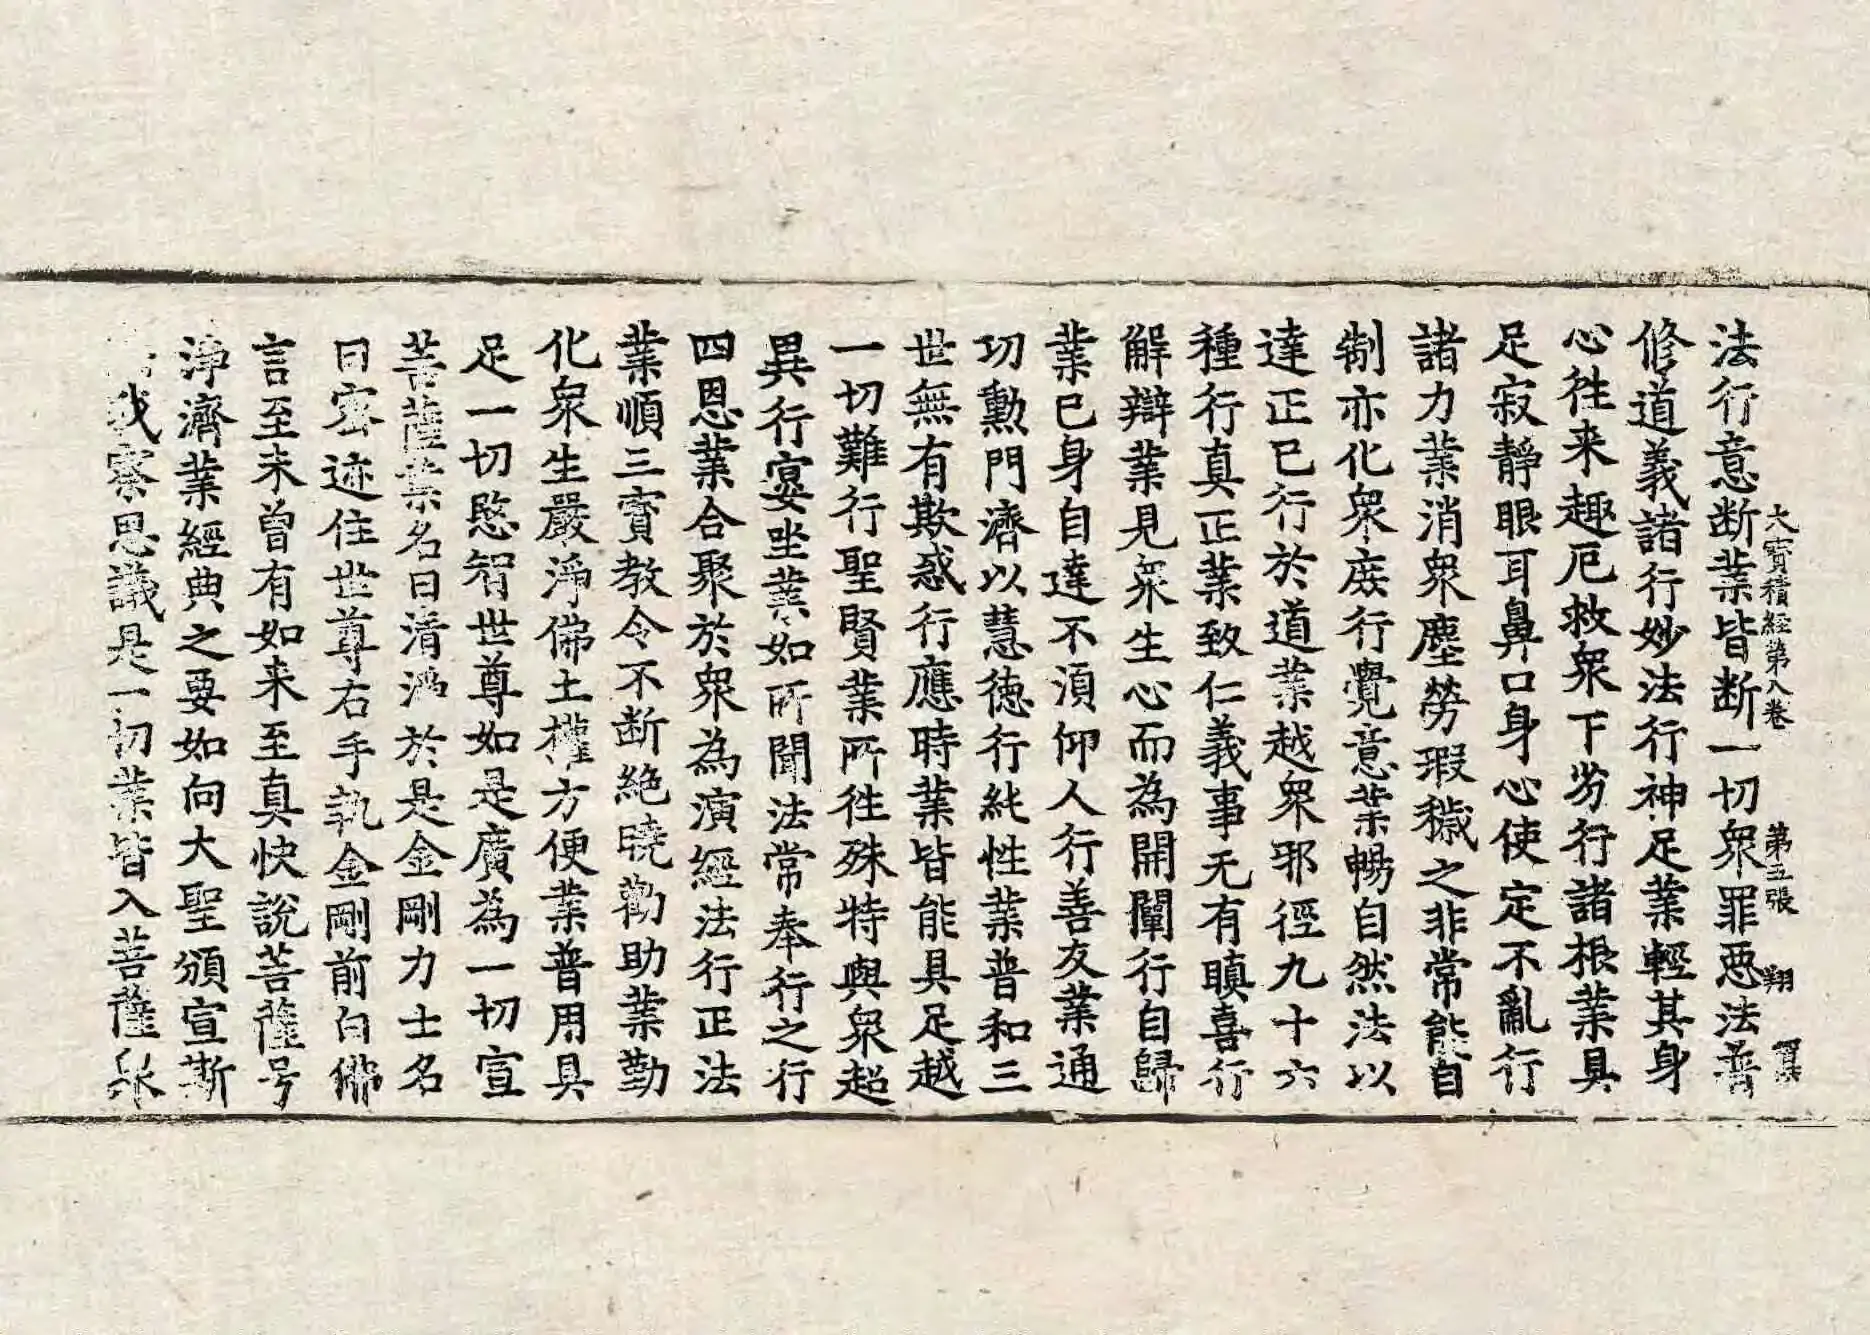 大寶積經第八卷 第五張 翔
法行意断業皆断一切衆罪惡法普
修道義諸行妙法行神足業輕其身
心往来趣厄救衆下劣行諸根業具
足寂靜眼耳鼻口身心使定不亂行
諸力業消衆塵勞瑕穢之非常能自
制亦化衆庶行覺意業暢自然法以
達正已行於道業越衆邪徑九十六
種行真正業致仁義事无有瞋喜行
解辯業見衆生心而為開闡行自歸
業已身自達不須仰人行善友業通
切勲門濟以慧德行純性業普和三
世無有欺惑行應時業皆能具足越
一切難行聖賢業所往殊特與衆超
異行宴坐業如所聞法常奉行之行
四恩業合聚於衆為演經法行正法
業順三寶教令不断絶曉勸助業勤
化衆生嚴淨佛土權方便業普用具
足一切愍智世尊如是廣為一切宣
菩薩業名曰清淨於是金剛力士名
曰密迹住世尊右手執金剛前白佛
言至未曾有如来至真快說菩薩号
淨濟業經典之要如向大聖頒宣斯
我察思議是一切業皆入菩薩